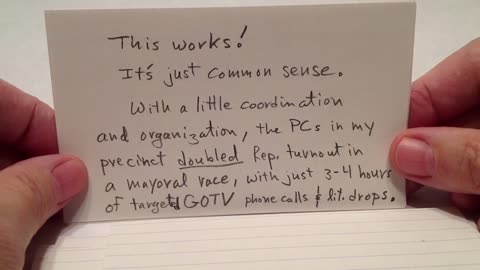 This works!
It's just common sense.
With a little coordination
and organization, the PCs in my
precinct doubled Rep. turnout in
a mayoral race, with just 3-4 hours
of targetd GOTV phone calls & lit. drops.